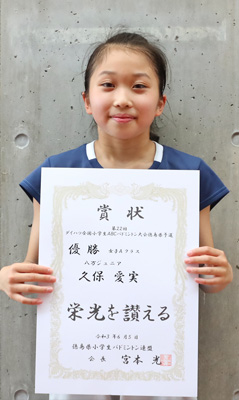 賞状
第22回
ダイハツ全国小学生ABCバドミントン大会徳島県予選
優勝 女子Aクラス
八万ジュニア
久保 愛実
栄光を讃える
令和3年6月5日
徳島県小学生バドミントン連盟
会長 宮本 光